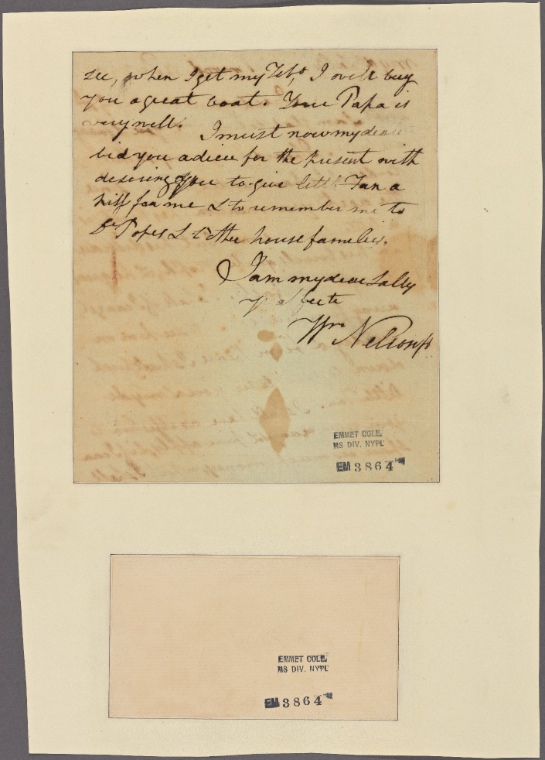 see, when I get my Tobo I will buy
you a great coat. Your Papa is
very well. I must now my dear
bid you adieu for the present with
desiring you to give litt: Fan a
kiss for me & to remember me to
Dr Popes & t'other house families.
I am my dear Sally
Yr affecte
Wm Nelson jr
EMMET COLL.
MS DIV. NYPL
EM 3864
EMMET COLL.
MS DIV. NYPL
EM 3864